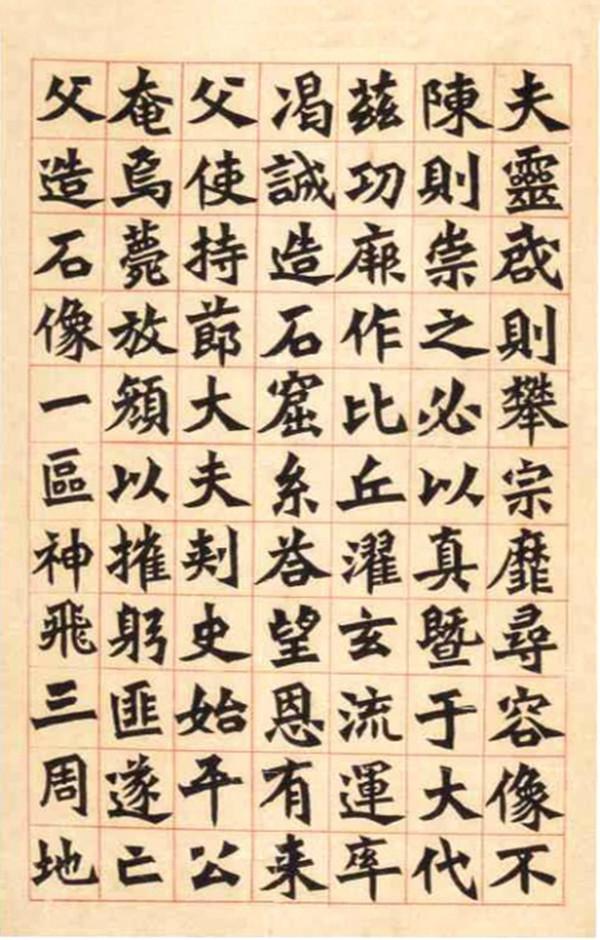 夫靈則攀宗靡尋容像不
陳則崇之必以真暨于大代
茲功厥作比丘濯玄流運率
渴誠造石窟糸荅望恩有来
父使持節大夫刾史始平公
奄焉薨放顏以摧躬匪遂亡
父造石像一區神飛三周地